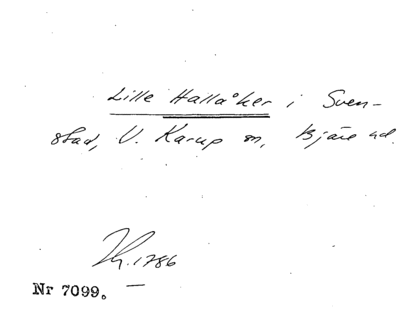 Lille Hallåker i Sven-
stad, V. Karup sn, Bjäre hd.
1786
Nr 7099.